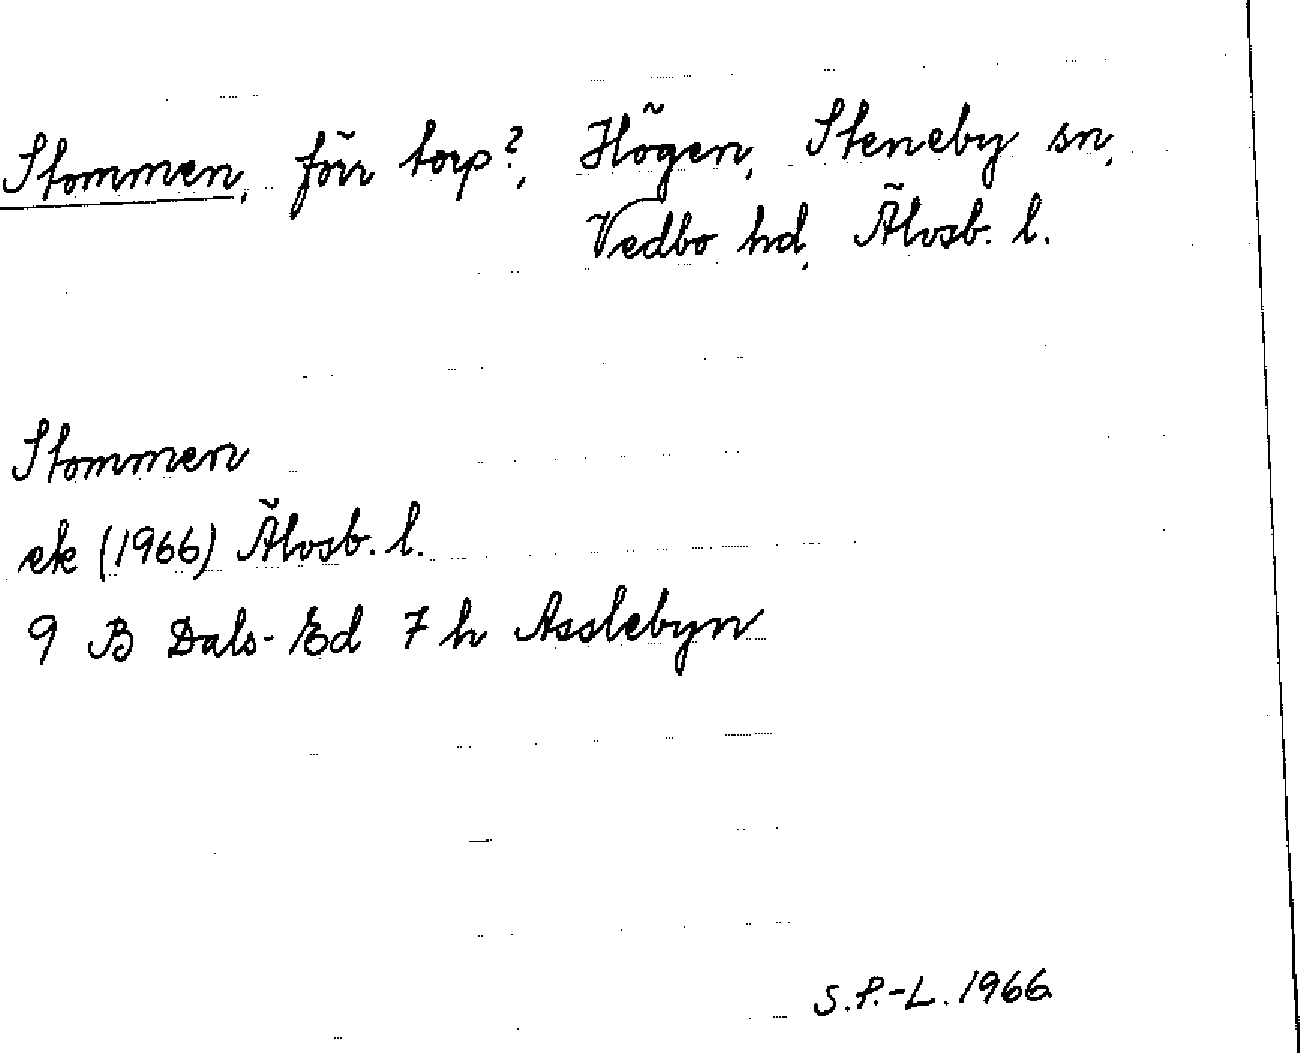 Stommen, förr torp?, Högen, Steneby sn,
Vedbo hd, Älvsb. l.
Stommen
ek (1966) Älvsb. l.
9 B Dals-Ed 7 h Asslebyn
S.P.-L. 1966